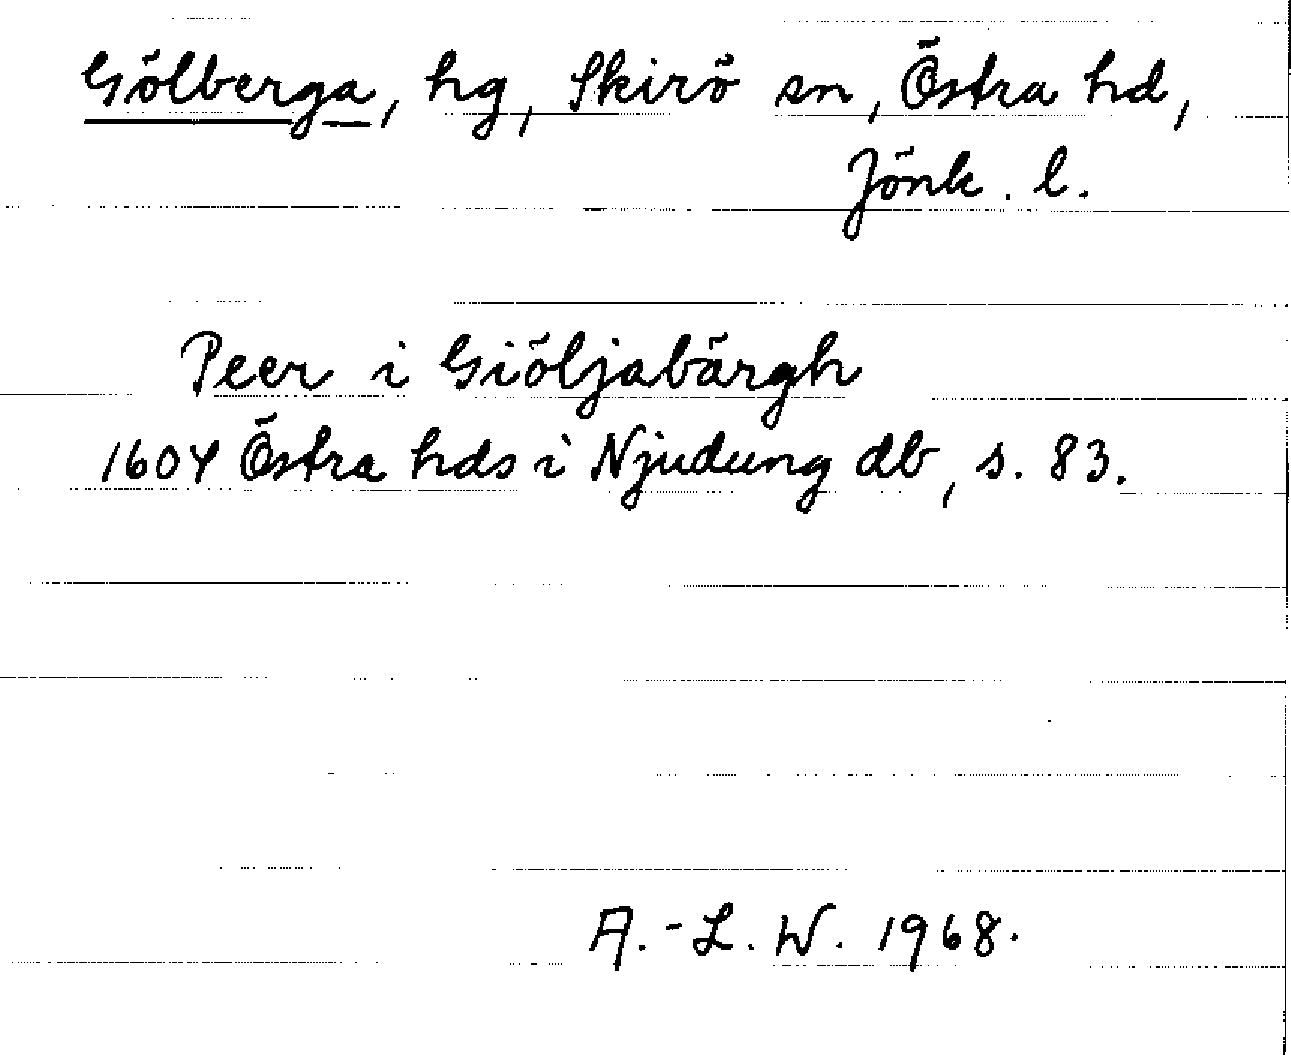 Gölberga, hg, Skirö sn, Östra hd,
Jönk. l.
Peer i Giöljabärgh
1604 Östra hds i Njudung db, s. 83.
A.-L. W. 1968.